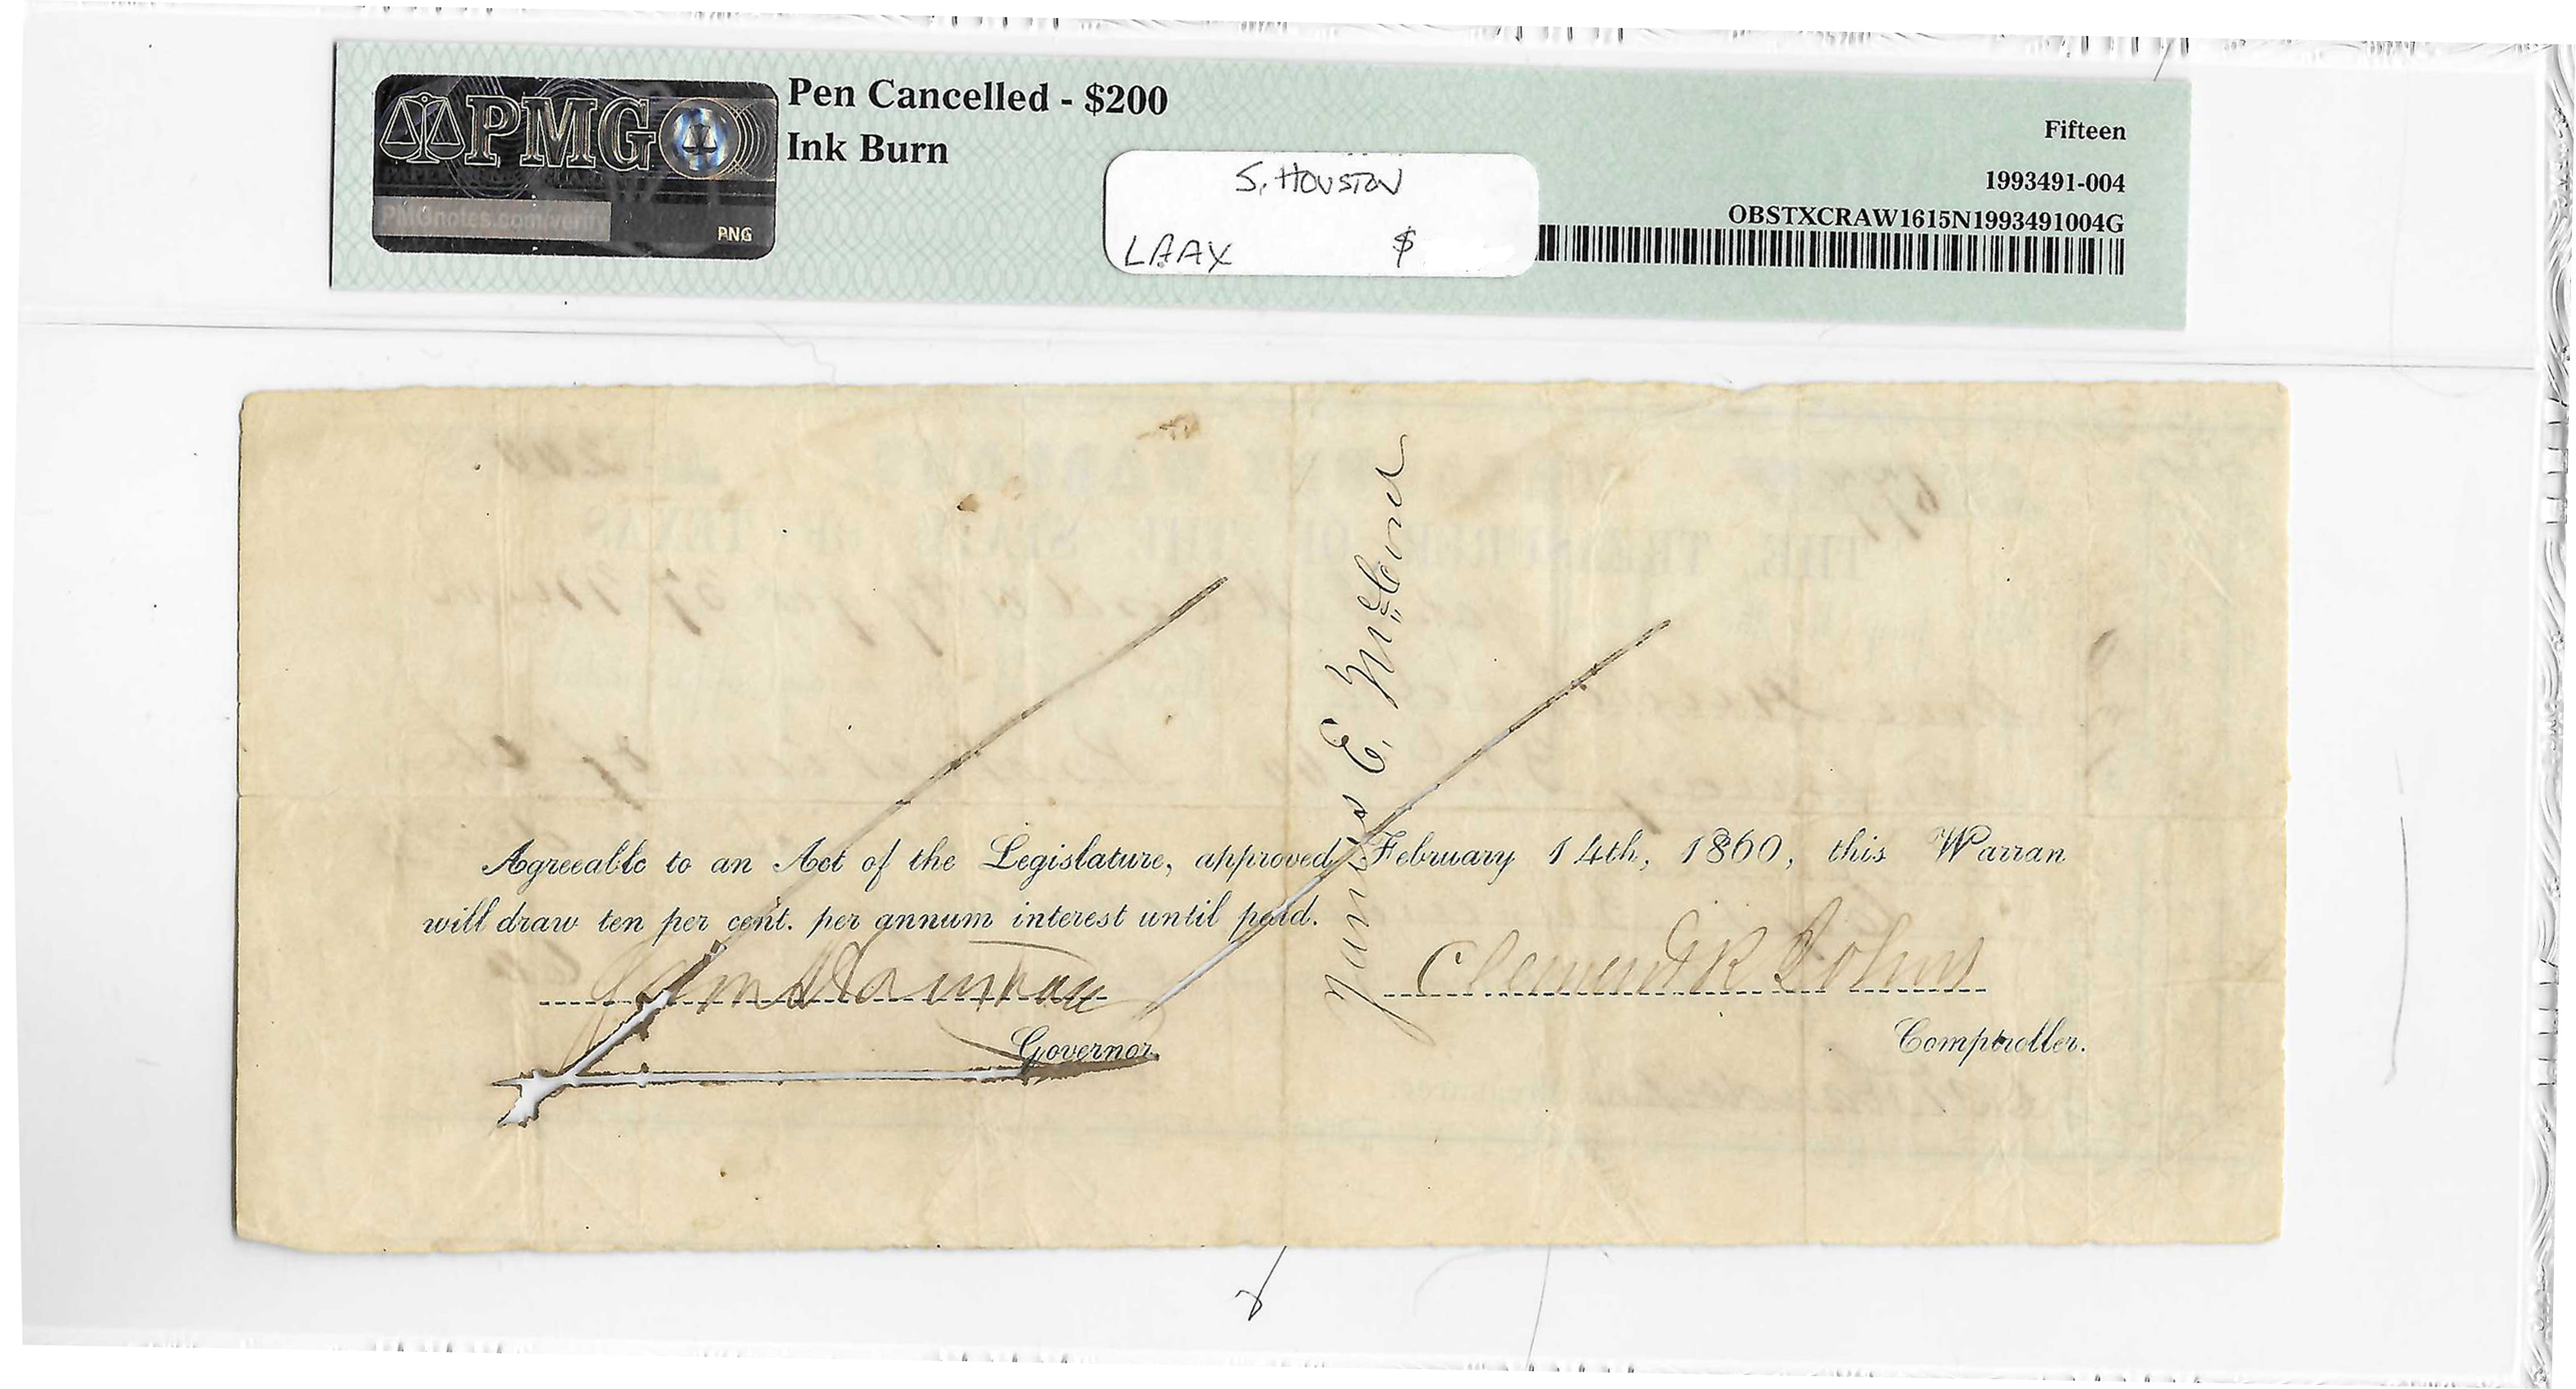 PMG
PMGnotes.com/verify
PNG
Pen Cancelled - $200
Ink Burn
Fifteen
1993491-004
OBSTXCRAW1615N1993491004G
S. HOUSTON
LAAX $
James E. McCord
Agreeable to an Act of the Legislature, approved February 14th, 1860, this Warran
will draw ten per cent. per annum interest until paid.
Sam Houston
Governor
Clement R Johns
Comptroller.